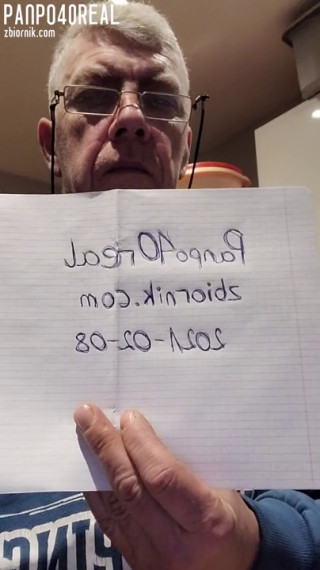 PANPO40REAL
zbiornik.com
Panpo40real
zbiornik.com
2021-02-08